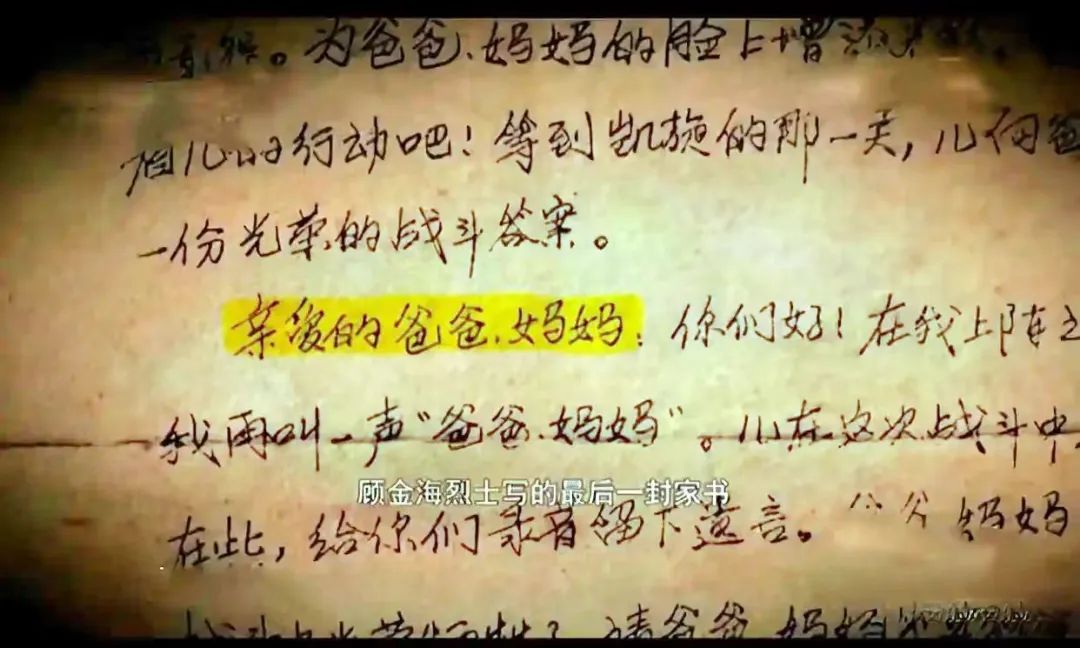 。为爸爸、妈妈的脸上增添
儿的行动吧！等到凯旋的那一天，儿向爸
一份光荣的战斗答案。
亲爱的爸爸、妈妈：你们好！在我上阵之
我再叫一声“爸爸、妈妈”。儿在这次战斗中
顾金海烈士写的最后一封家书
在此，给你们录音留下遗言。妈妈
请爸爸、妈妈